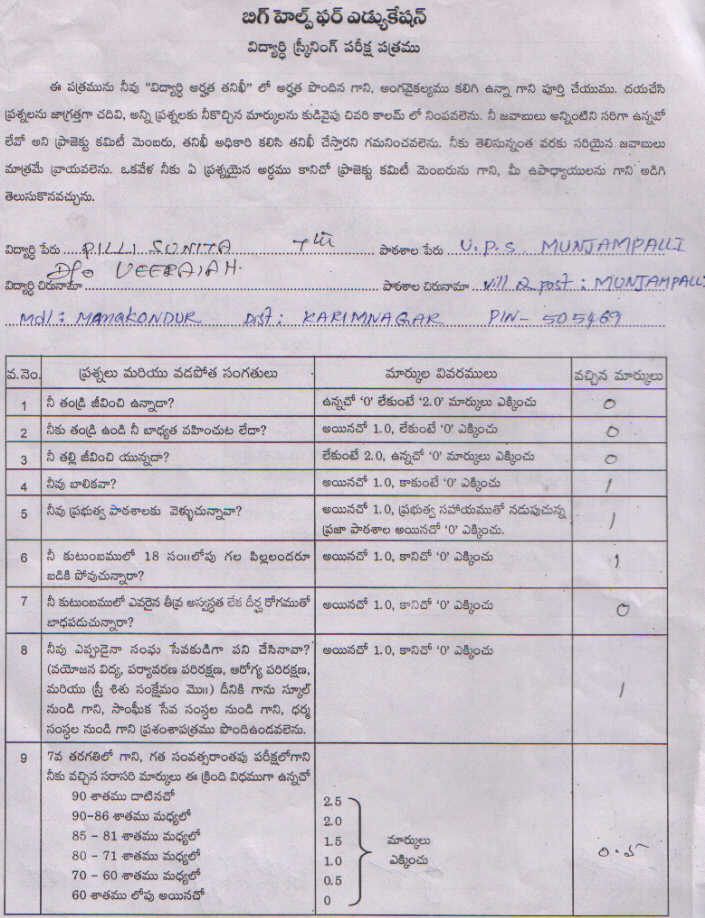 బిగ్ హెల్ప్ ఫర్ ఎడ్యుకేషన్
విద్యార్ధి స్క్రీనింగ్ పరీక్ష పత్రము
ఈ పత్రమును నీవు "విద్యార్ధి అర్హత తనిఖీ" లో అర్హత పొందిన గాని, అంగవైకల్యము కలిగి ఉన్నా గాని పూర్తి చేయుము. దయచేసి
ప్రశ్నలను జాగ్రత్తగా చదివి, అన్ని ప్రశ్నలకు నీకొచ్చిన మార్కులను కుడివైపు చివరి కాలమ్ లో నింపవలెను. నీ జవాబులు అన్నింటిని సరిగా ఉన్నవో
లేవో అని ప్రాజెక్టు కమిటీ మెంబరు, తనిఖీ అధికారి కలిసి తనిఖీ చేస్తారని గమనించవలెను. నీకు తెలిసున్నంత వరకు సరియైన జవాబులు
మాత్రమే వ్రాయవలెను. ఒకవేళ నీకు ఏ ప్రశ్నయైన అర్ధము కానిచో ప్రాజెక్టు కమిటీ మెంబరును గాని, మీ ఉపాధ్యాయులను గాని అడిగి
తెలుసుకొనవచ్చును.
విద్యార్ధి పేరు PILLI SUNITA 7th పాఠశాల పేరు U.P.S. MUNJAMPALLI
D/o VEERAIAH.
విద్యార్ధి చిరునామా పాఠశాల చిరునామా vill & post : MUNJAMPALLI
Mdl: MANAKONDUR Dist: KARIMNAGAR PIN- 505469
వ.నెం. ప్రశ్నలు మరియు వడపోత సంగతులు మార్కుల వివరములు వచ్చిన మార్కులు
1 నీ తండ్రి జీవించి ఉన్నాడా? ఉన్నచో '0' లేకుంటే '2.0' మార్కులు ఎక్కించు 0
2 నీకు తండ్రి ఉండి నీ బాధ్యత వహించుట లేదా? అయినచో 1.0, లేకుంటే '0' ఎక్కించు 0
3 నీ తల్లి జీవించి యున్నదా? లేకుంటే 2.0, ఉన్నచో '0' మార్కులు ఎక్కించు 0
4 నీవు బాలికవా? అయినచో 1.0, కాకుంటే '0' ఎక్కించు 1
5 నీవు ప్రభుత్వ పాఠశాలకు వెళ్ళుచున్నావా? అయినచో 1.0, ప్రభుత్వ సహాయముతో నడుపుచున్న
ప్రజా పాఠశాల అయినచో '0' ఎక్కించు. 1
6 నీ కుటుంబములో 18 సం॥లోపు గల పిల్లలందరూ అయినచో 1.0, కానిచో '0' ఎక్కించు 1
బడికి పోవుచున్నారా?
7 నీ కుటుంబములో ఎవరైన తీవ్ర అస్వస్థత లేక దీర్ఘ రోగముతో అయినచో 1.0, కానిచో '0' ఎక్కించు 0
బాధపడుచున్నారా?
8 నీవు ఎప్పుడైనా సంఘ సేవకుడిగా పని చేసినావా? అయినచో 1.0, కానిచో '0' ఎక్కించు
(వయోజన విద్య, పర్యావరణ పరిరక్షణ, ఆరోగ్య పరిరక్షణ,
మరియు స్త్రీ శిశు సంక్షేమం మొ॥) దీనికి గాను స్కూల్ 1
నుండి గాని, సాంఘీక సేవ సంస్థల నుండి గాని, ధర్మ
సంస్థల నుండి గాని ప్రశంశాపత్రము పొందిఉండవలెను.
9 7వ తరగతిలో గాని, గత సంవత్సరాంతపు పరీక్షలోగాని
నీకు వచ్చిన సరాసరి మార్కులు ఈ క్రింది విధముగా ఉన్నచో
90 శాతము దాటినచో 2.5
90-86 శాతము మధ్యలో 2.0
85 - 81 శాతము మధ్యలో 1.5 మార్కులు
80 - 71 శాతము మధ్యలో 1.0 ఎక్కించు 0.5
70 - 60 శాతము మధ్యలో 0.5
60 శాతము లోపు అయినచో 0